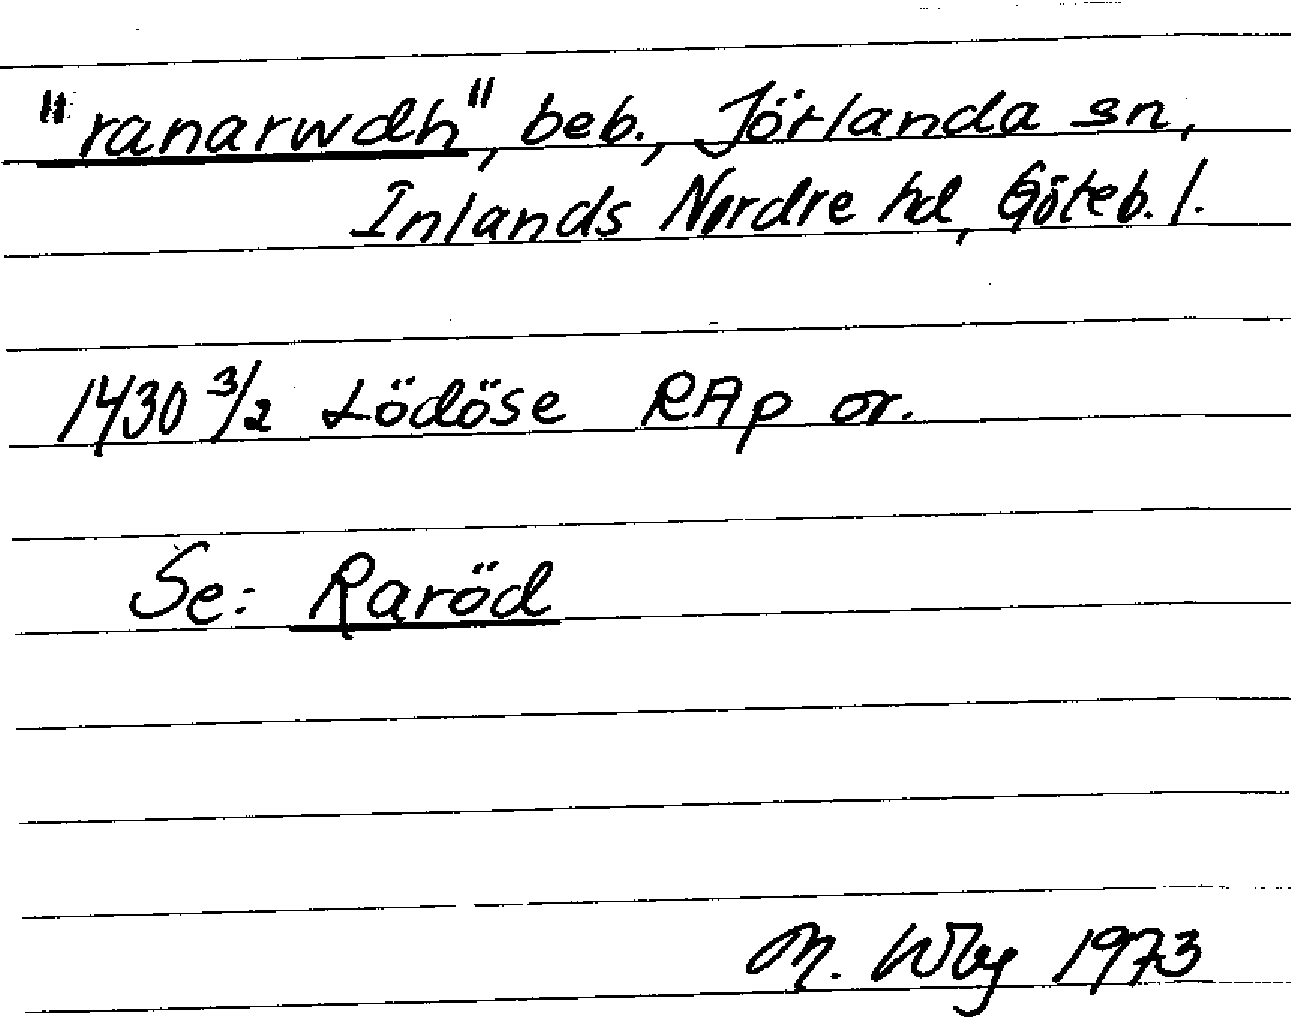 "ranarwdh", beb., Jörlanda sn,
Inlands Nordre hd, Göteb. l.
1430 3/2 Lödöse RAp or.
Se: Raröd
M. Wbg 1973